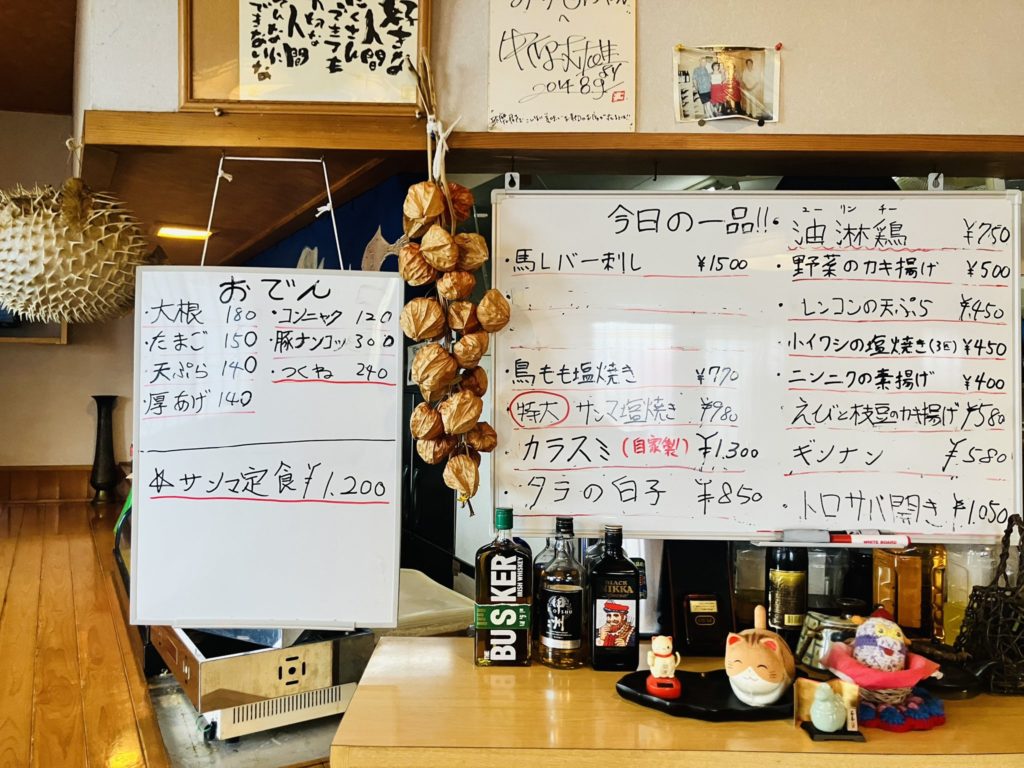 好きな
人間
たくさん
できても
人間
できない
2014.8.9
おでん
・大根 180
・たまご 150
天ぷら 140
・厚あげ 140
・コンニャク 120
・豚ナンコツ 300
・つくね 240
サンマ定食 ¥1.200
今日の一品!!
・馬レバー刺し ¥1500
・鳥もも塩焼き ¥770
特大 サンマ塩焼き ¥980
・カラスミ(自家製) ¥1.300
・タラの白子 ¥850
ユーリンチー
・油淋鶏 ¥750
・野菜のカキ揚げ ¥500
・レンコンの天ぷら ¥450
・小イワシの塩焼き(3匹) ¥450
・ニンニクの素揚げ ¥400
えびと枝豆のカキ揚げ ¥580
・ギンナン ¥580
・トロサバ開き ¥1.050
WHITE BOARD
THE BUSKER
IRISH WHISKEY
BLACK
NIKKA